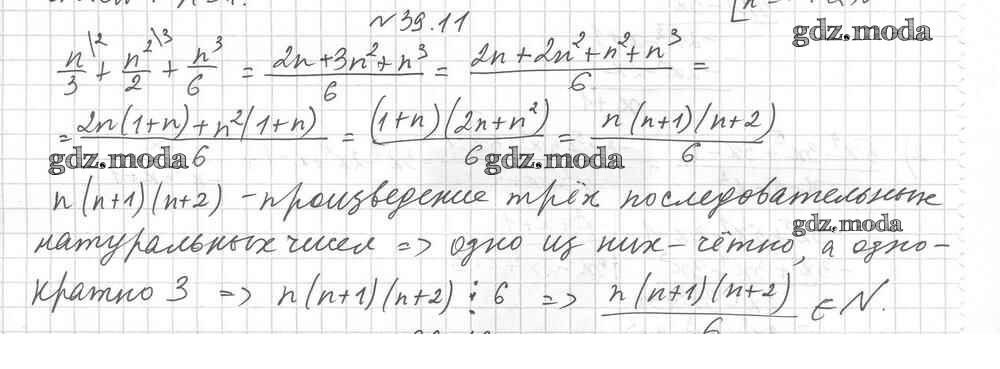 №39.11
gdz.moda
n/3 \2 + n²/2 \3 + n³/6 = (2n+3n²+n³)/6 = (2n+2n²+n²+n³)/6 =
= (2n(1+n)+n²(1+n))/6 = ((1+n)(2n+n²))/6 = (n(n+1)(n+2))/6
gdz.moda gdz.moda
n(n+1)(n+2) - произведение трёх последовательных
gdz.moda
натуральных чисел => одно из них - чётно, а одно-
кратно 3 => n(n+1)(n+2) ⋮ 6 => (n(n+1)(n+2))/6 ∈ N.